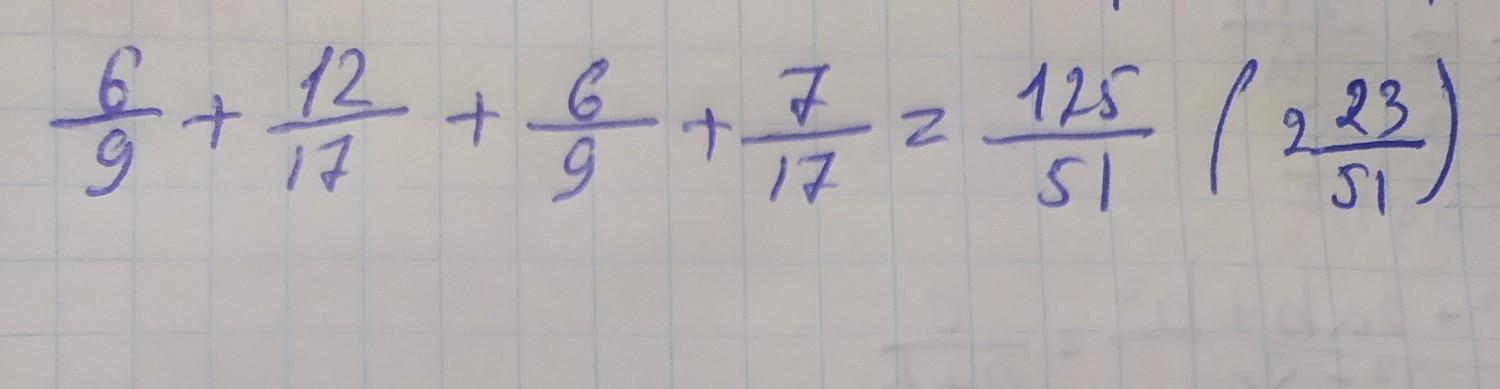 6/9 + 12/17 + 6/9 + 7/17 = 125/51 (2 23/51)